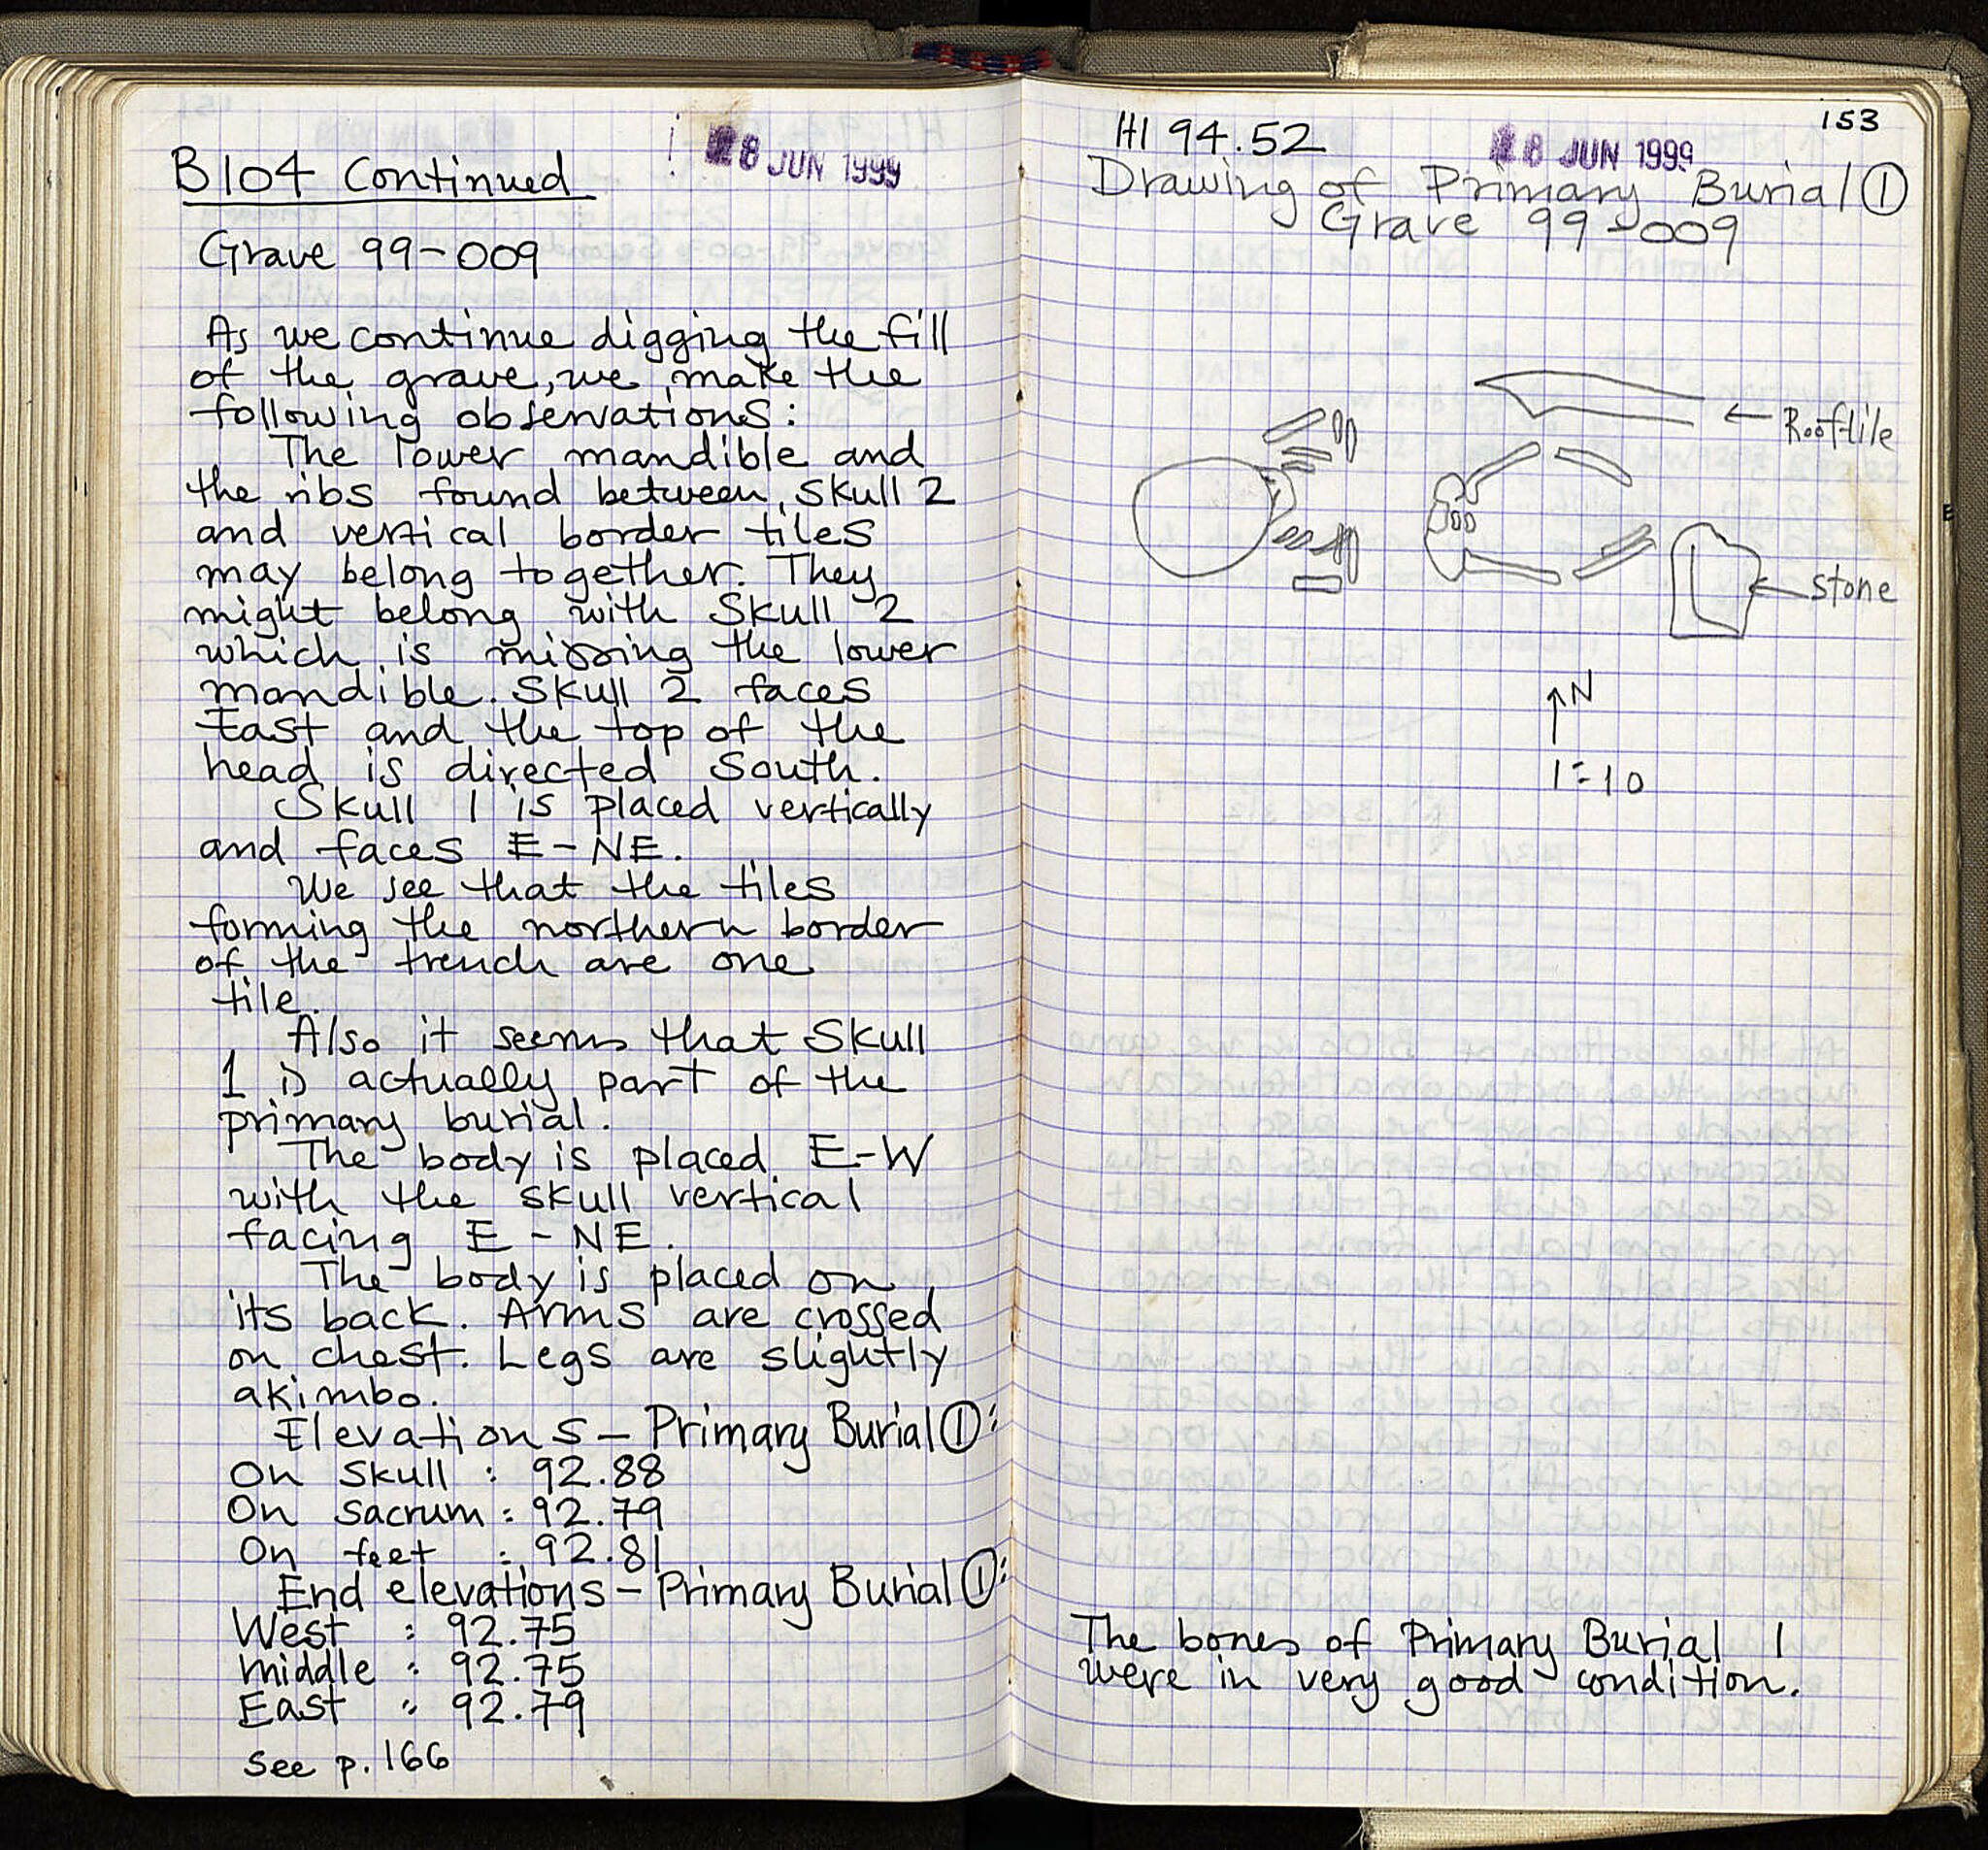 8 JUN 1999
B104 Continued
Grave 99-009
As we continue digging the fill
of the grave, we make the
following observations:
The lower mandible and
the ribs found between Skull 2
and vertical border tiles
may belong together. They
might belong with Skull 2
which is missing the lower
mandible. Skull 2 faces
East and the top of the
head is directed South.
Skull 1 is placed vertically
and faces E-NE.
We see that the tiles
forming the northern border
of the trench are one
tile.
Also it seems that Skull
1 is actually part of the
primary burial.
The body is placed E-W
with the skull vertical
facing E-NE.
The body is placed on
its back. Arms are crossed
on chest. Legs are slightly
akimbo.
Elevations - Primary Burial ①:
On Skull : 92.88
On sacrum : 92.79
On feet : 92.81
End elevations - Primary Burial ①:
West : 92.75
middle : 92.75
East : 92.79
See p. 166
153
HI 94.52
8 JUN 1999
Drawing of Primary Burial ①
Grave 99-009
← Rooftile
← stone
N
1:10
The bones of Primary Burial 1
were in very good condition.